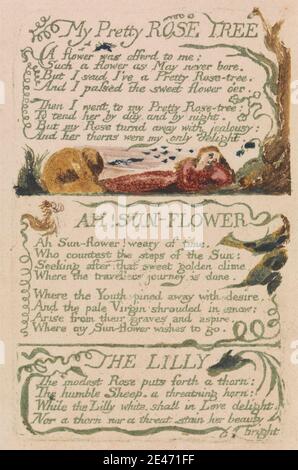 My Pretty ROSE TREE
A flower was offerd to me:
Such a flower as May never bore.
But I said I've a Pretty Rose-tree.
And I passed the sweet flower oer.
Then I went to my Pretty Rose-tree:
To tend her by day and by night.
But my Rose turnd away with jealousy:
And her thorns were my only delight.
AH! SUN-FLOWER
Ah Sun-flower! weary of time,
Who countest the steps of the Sun:
Seeking after that sweet golden clime
Where the travellers journey is done.
Where the Youth pined away with desire,
And the pale Virgin shrouded in snow:
Arise from their graves and aspire,
Where my Sun-flower wishes to go.
THE LILLY
The modest Rose puts forth a thorn:
The humble Sheep, a threatning horn:
While the Lilly white, shall in Love delight,
Nor a thorn nor a threat stain her beauty
bright
alamy
Image ID: 2E471FF
www.alamy.com